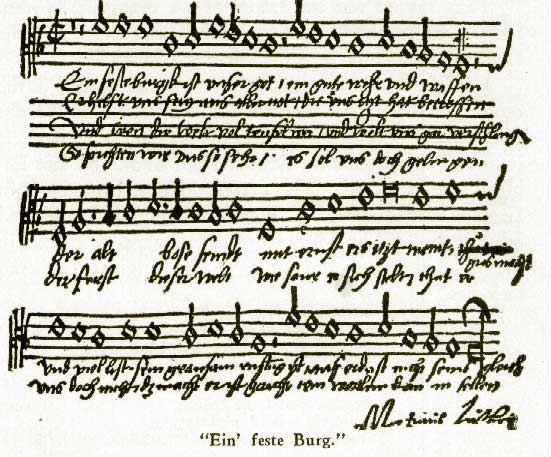 Ein feste burgk ist unser got / ein gute wehr und waffen
Er hilft uns frey aus aller not / die uns itzt hat betroffen
Und wen die welt vol teufel wer / und wolt uns gar verschlingen
So furchten wir uns so sehr / es sol uns doch gelingen
Der alt bose feindt mit ernst ers itzt meint gros macht
der furst dieser welt wie saur er sich stelt thut er
und viel list sein grausam rustung ist auf erd ist nicht seins gleich
uns doch nicht das macht er ist gericht ein wortlein kan in fellen
Martinus Luther
"Ein' feste Burg."